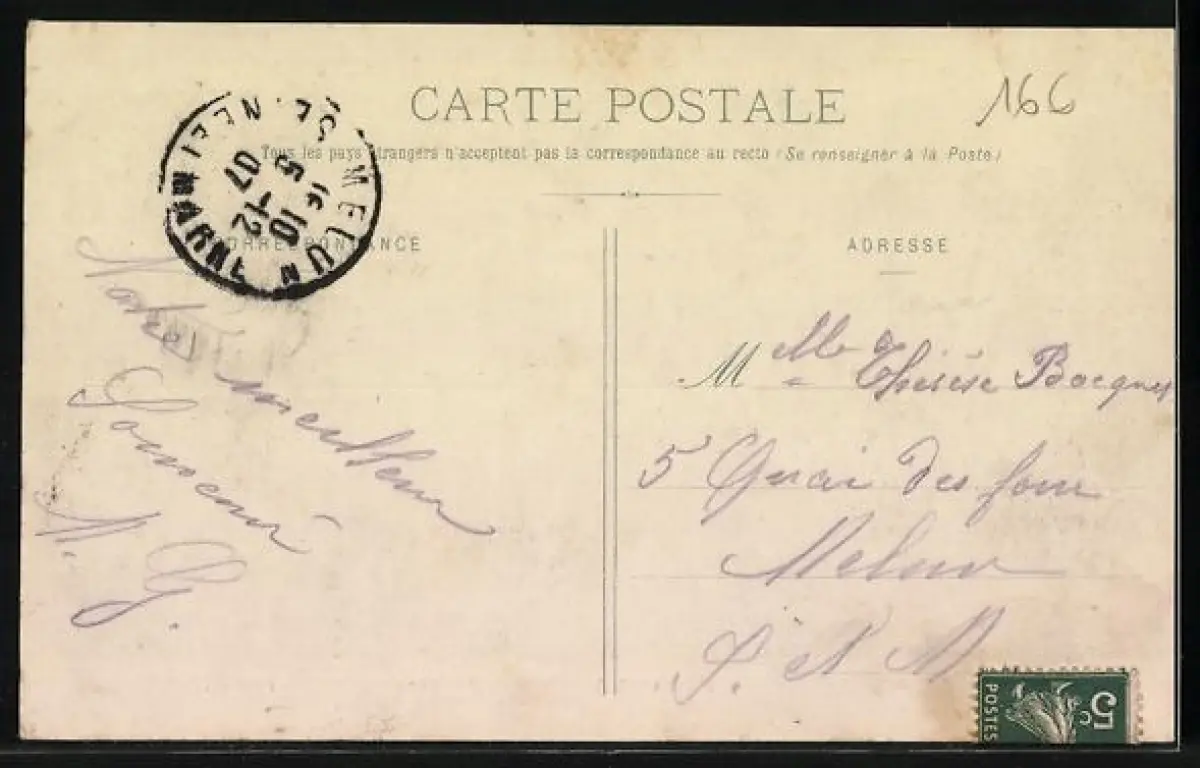 166
CARTE POSTALE
Tous les pays étrangers n'acceptent pas la correspondance au recto (Se renseigner à la Poste)
MELUN
SNE ET MARNE
10
5 -12
07
CORRESPONDANCE
ADRESSE
meilleur
Souvenir
M. G.
M Mlle Thérèse Bocquet
5 Quai des
Melun
S. et M
5c
POSTES